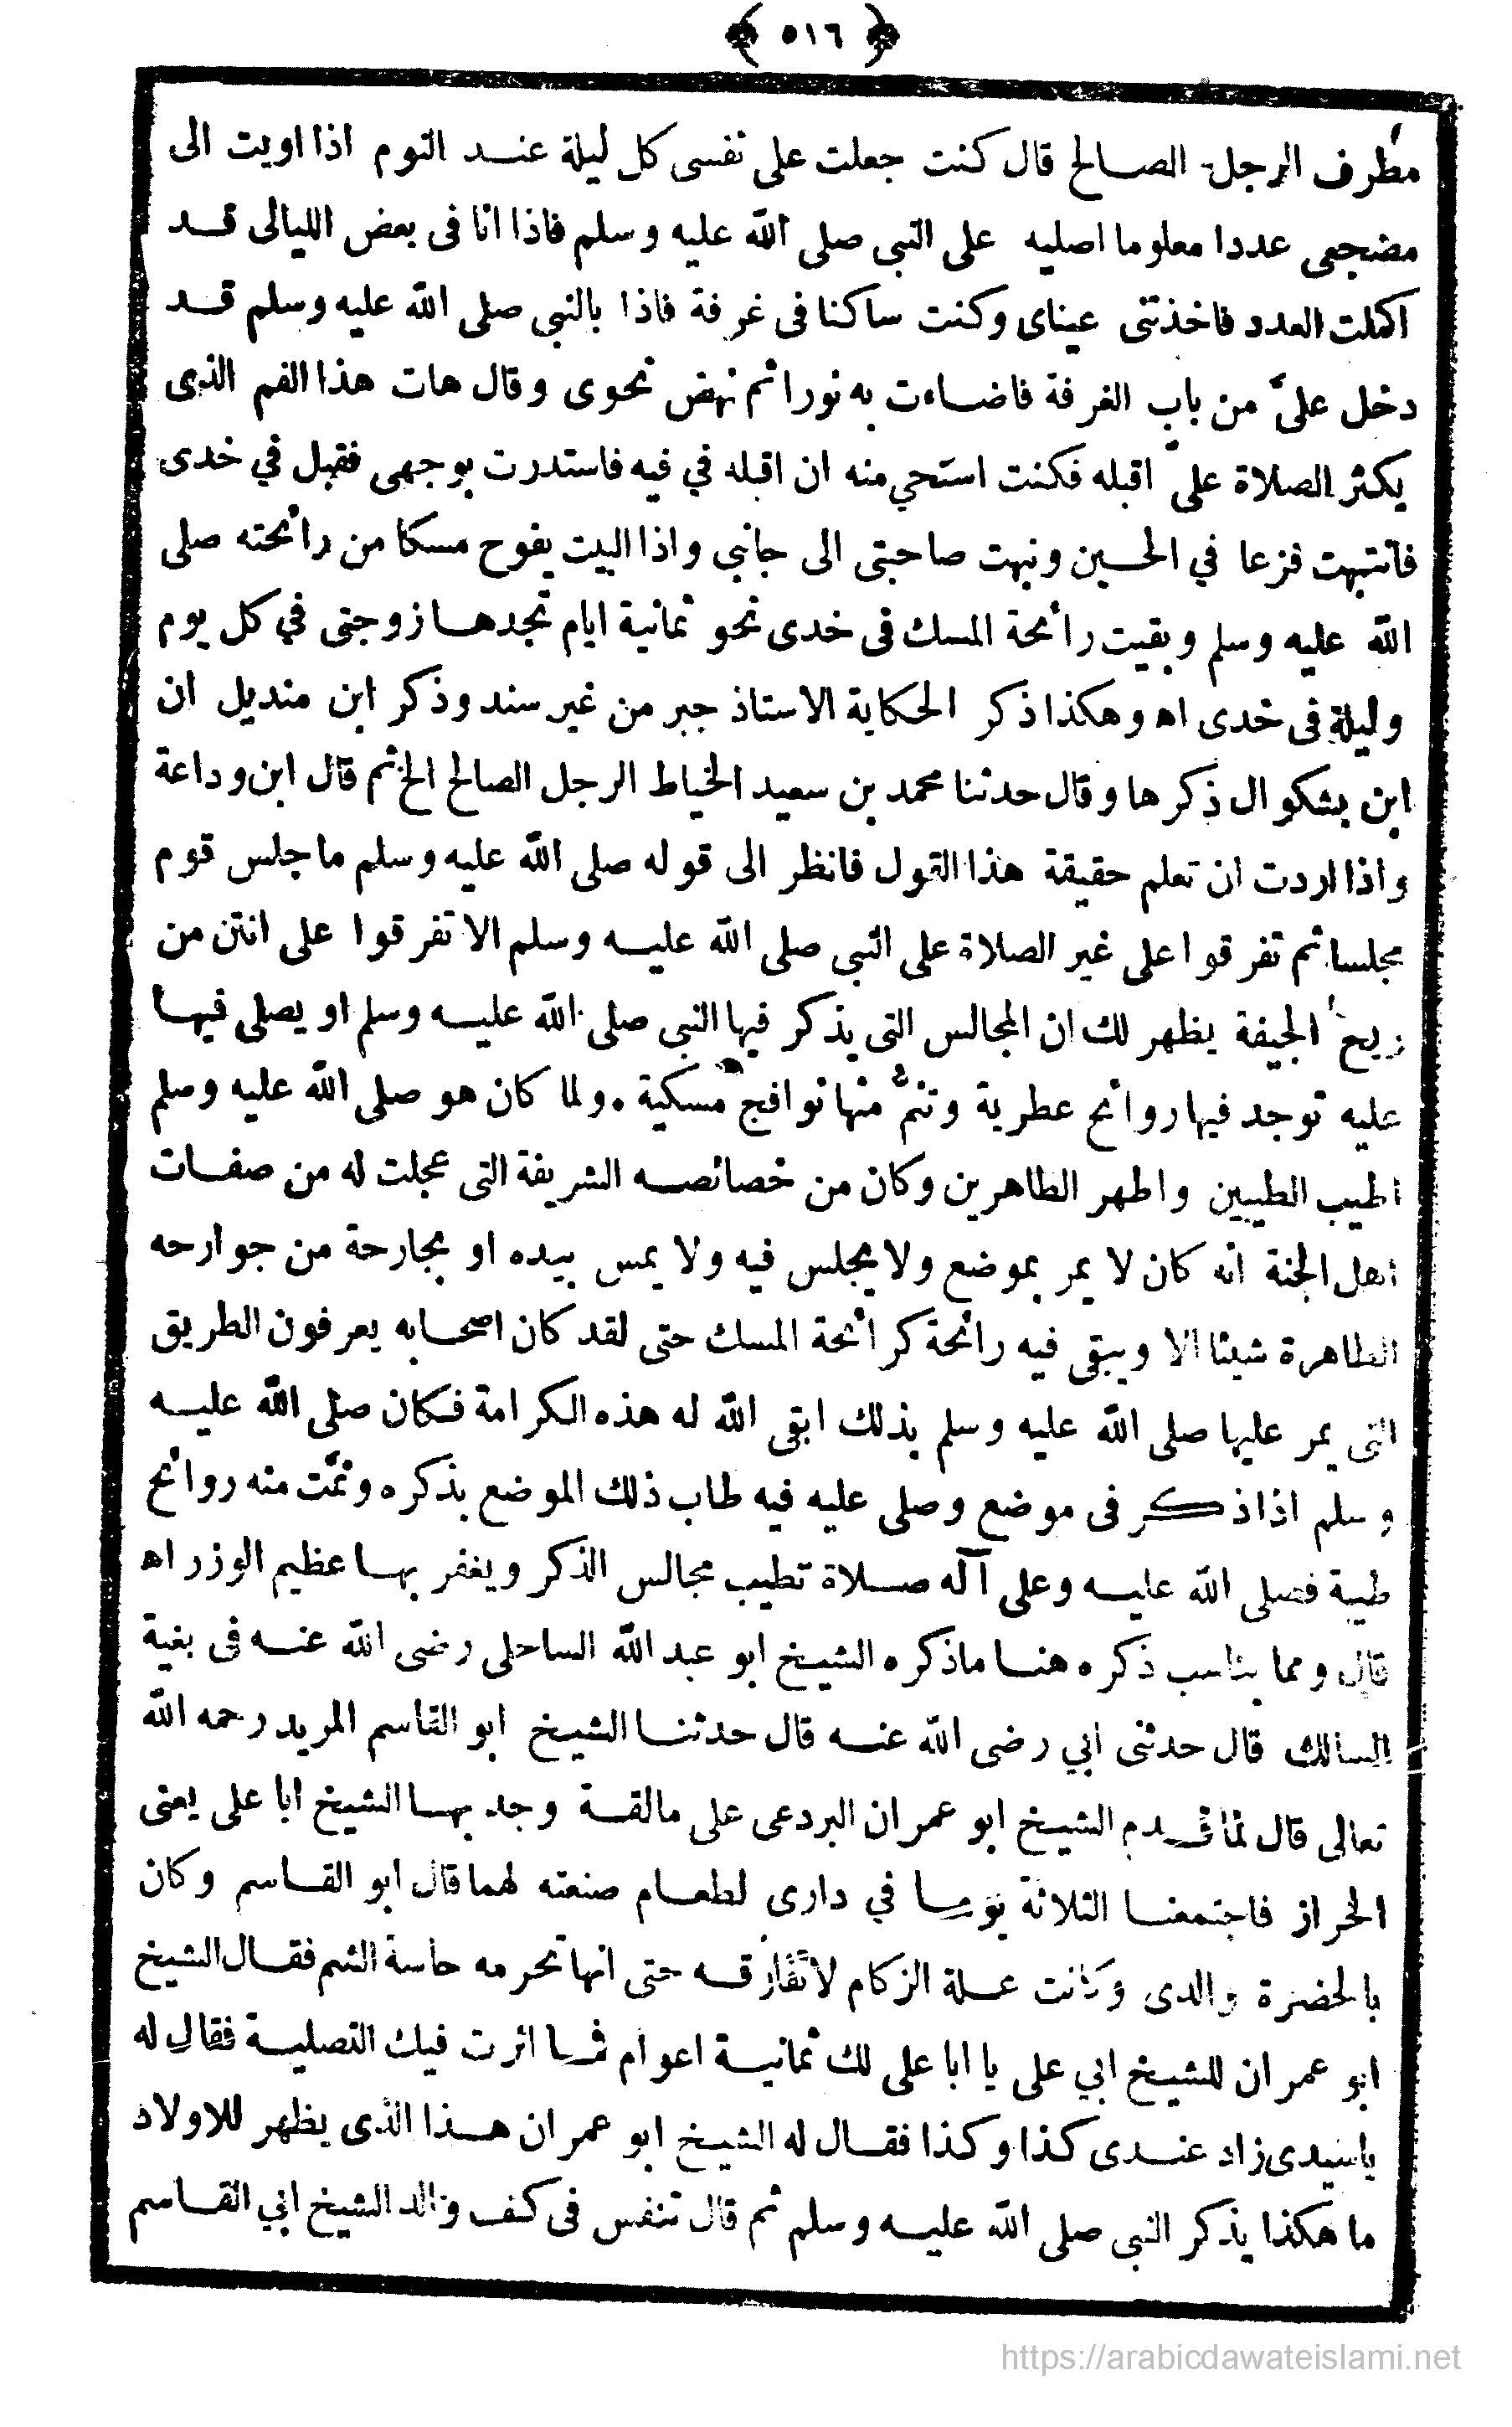 ﴿ ٥١٦ ﴾
مطرف الرجل الصالح قال كنت جعلت على نفسى كل ليلة عند النوم اذا اويت الى
مضجعى عددا معلوما اصليه على النبى صلى الله عليه وسلم فاذا انا فى بعض الليالى قد
اكملت العدد فاخذتنى عيناى وكنت ساكنا فى غرفة فاذا بالنبى صلى الله عليه وسلم قد
دخل علىّ من باب الغرفة فاضاءت به نورا ثم نهض نحوى وقال هات هذا الفم الذى
يكثر الصلاة علىّ اقبله فكنت استحي منه ان اقبله في فيه فاستدرت بوجهى فقبل في خدى
فانتبهت فزعا في الحسين ونبهت صاحبتى الى جانبي واذا البيت يفوح مسكا من رائحته صلى
الله عليه وسلم وبقيت رائحة المسك فى خدى نحو ثمانية ايام تجدها زوجتى في كل يوم
وليلة فى خدى اه وهكذا ذكر الحكاية الاستاذ جبر من غير سند وذكر ابن منديل ان
ابن بشكوال ذكرها وقال حدثنا محمد بن سعيد الخياط الرجل الصالح الخ ثم قال ابن وداعة
واذا اردت ان تعلم حقيقة هذا القول فانظر الى قوله صلى الله عليه وسلم ما جلس قوم
مجلسا ثم تفرقوا على غير الصلاة على النبى صلى الله عليه وسلم الا تفرقوا على انتن من
ريح الجيفة يظهر لك ان المجالس التى يذكر فيها النبى صلى الله عليه وسلم او يصلى فيها
عليه توجد فيها روائح عطرية وتنمُّ منها نوافج مسكية . ولما كان هو صلى الله عليه وسلم
اطيب الطيبين واطهر الطاهرين وكان من خصائصه الشريفة التى عجلت له من صفات
اهل الجنة انه كان لا يمر بموضع ولا يجلس فيه ولا يمس بيده او بجارحة من جوارحه
الطاهرة شيئا الا ويبقى فيه رائحة كرائحة المسك حتى لقد كان اصحابه يعرفون الطريق
التى يمر عليها صلى الله عليه وسلم بذلك ابقى الله له هذه الكرامة فكان صلى الله عليه
وسلم اذا ذكر فى موضع وصلى عليه فيه طاب ذلك الموضع بذكره ونمّت منه روائح
طيبة فصلى الله عليه وعلى آله صلاة تطيب مجالس الذكر ويغفر بها عظيم الوزر اه
قال ومما يناسب ذكره هنا ما ذكره الشيخ ابو عبد الله الساحلى رضى الله عنه فى بغية
السالك قال حدثنى ابي رضى الله عنه قال حدثنا الشيخ ابو القاسم المريد رحمه الله
تعالى قال لما قدم الشيخ ابو عمران البردعى على مالقة وجد بها الشيخ ابا على يعنى
الخراز فاجتمعنا الثلاثة يوما في دارى لطعام صنعته لهما قال ابو القاسم وكان
بالحضرة والدى وكانت علة الزكام لا تفارقه حتى انها تحرمه حاسة الشم فقال الشيخ
ابو عمران للشيخ ابي على يا ابا على لك ثمانية اعوام فما اثرت فيك التصلية فقال له
يا سيدى زاد عندى كذا وكذا فقال له الشيخ ابو عمران هذا الذى يظهر للاولاد
ما هكذا يذكر النبى صلى الله عليه وسلم ثم قال تنفس فى كف والد الشيخ ابي القاسم
https://arabicdawateislami.net